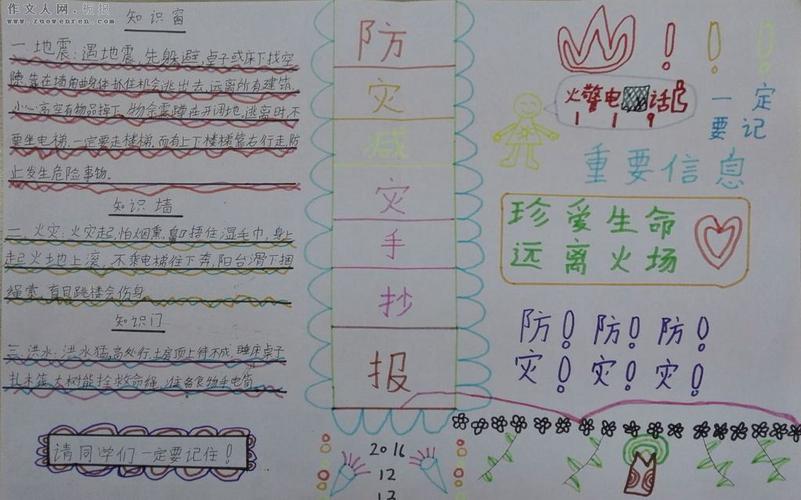 作文人网·板报
www.zuowenren.com
知识窗
一、地震：遇地震，先躲避，桌子或床下找空
隙，靠在墙角曲身体，抓住机会逃出去，远离所有建筑，
小心高空有物品掉下，余震蹲在开阔地，逃离时不
要坐电梯，一定要走楼梯，而有上下楼梯靠右行走，防
止发生危险事物。
知识墙
二、火灾：火灾起，怕烟熏，鼻口捂住湿毛巾，身上
起火地上滚，不乘电梯往下奔，阳台滑下捆
绳索，盲目跳楼会伤身。
知识门
三、洪水：洪水猛，高处行，土房顶上待不成，睡床桌子
扎木筏，大树能拴救命绳，准备食物手电筒
请同学们一定要记住！
防
灾
减
灾
手
抄
报
2016
12
12
！！！
火警电话
119
一定
要记
重要信息
珍爱生命
远离火场
防！防！防！
灾！灾！灾！